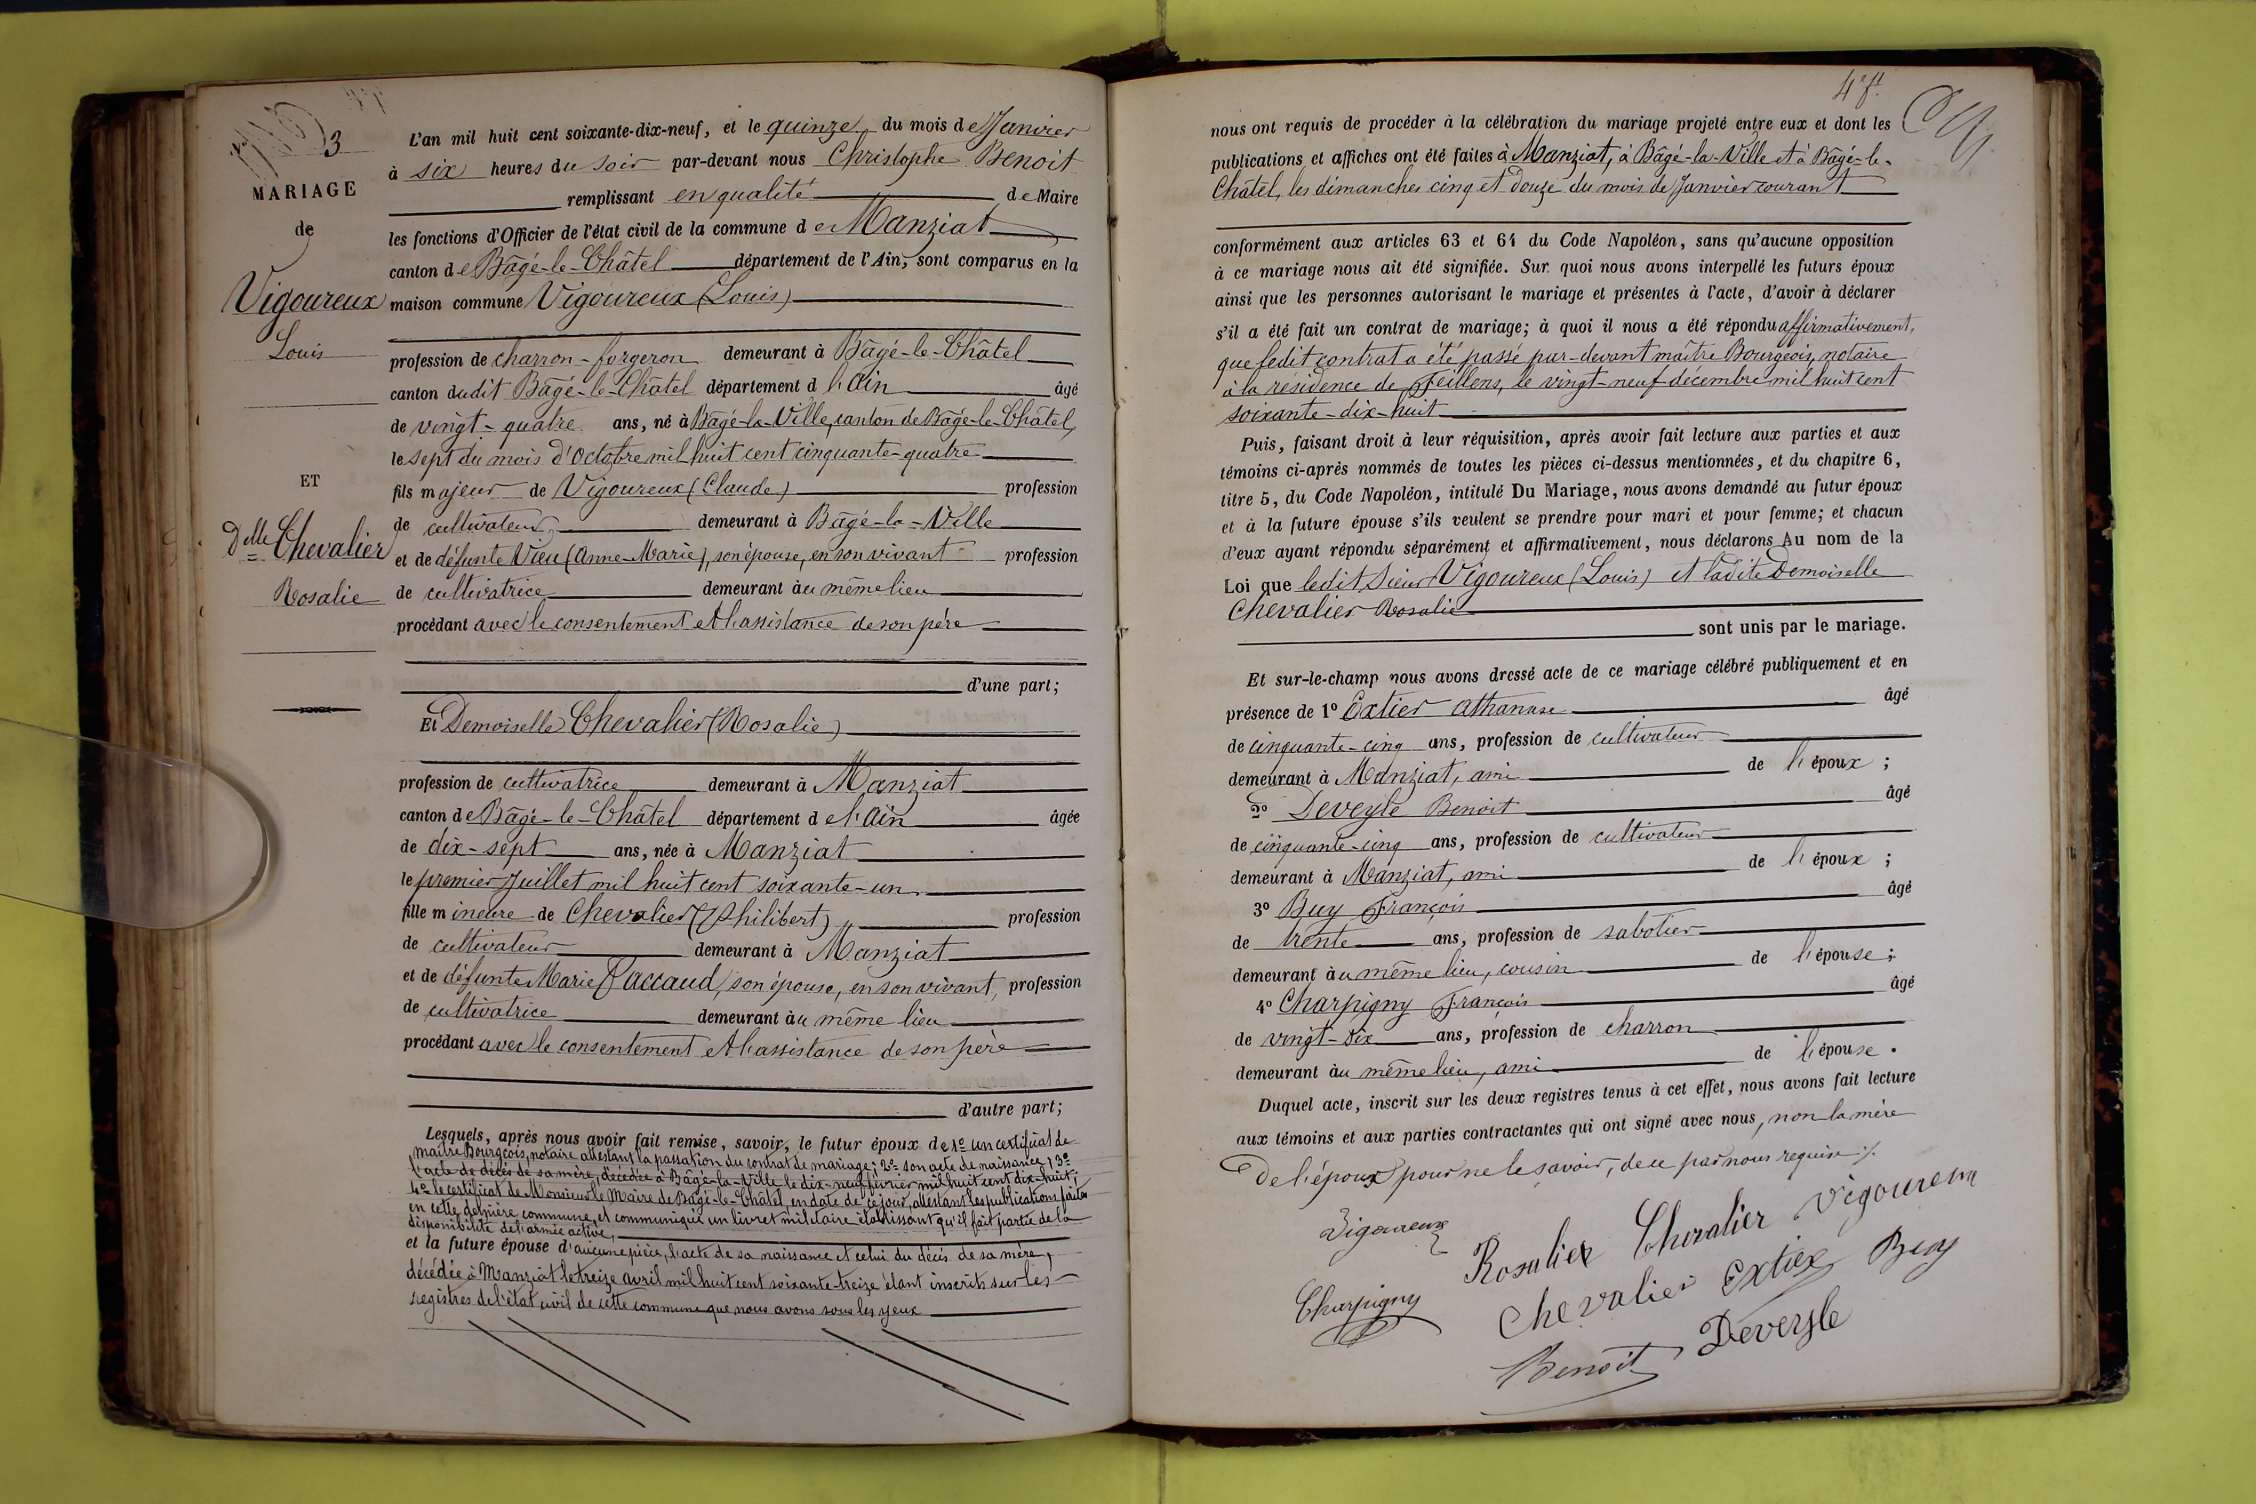 3
MARIAGE
de
Vigoureux
Louis
ET
Delle Chevalier
Rosalie
L'an mil huit cent soixante-dix-neuf, et le quinze du mois de Janvier
à six heures du soir par-devant nous Christophe Benoit
remplissant en qualité de Maire
les fonctions d'Officier de l'état civil de la commune de Manziat
canton de Bâgé-le-Châtel département de l'Ain, sont comparus en la
maison commune Vigoureux (Louis)
profession de charron-forgeron demeurant à Bâgé-le-Châtel
canton dudit Bâgé-le-Châtel département d l'Ain âgé
de vingt-quatre ans, né à Bâgé-la-Ville, canton de Bâgé-le-Châtel,
le sept du mois d'Octobre mil huit cent cinquante-quatre
fils majeur de Vigoureux (Claude) profession
de cultivateur demeurant à Bâgé-la-Ville
et de défunte Vieu (Anne-Marie), son épouse, en son vivant profession
de cultivatrice demeurant au même lieu
procédant avec le consentement et l'assistance de son père
d'une part;
Et Demoiselle Chevalier (Rosalie)
profession de cultivatrice demeurant à Manziat
canton de Bâgé-le-Châtel département de l'Ain âgée
de dix-sept ans, née à Manziat
le premier Juillet mil huit cent soixante-un
fille mineure de Chevalier (Philibert) profession
de cultivateur demeurant à Manziat
et de défunte Marie Paccaud, son épouse, en son vivant, profession
de cultivatrice demeurant au même lieu
procédant avec le consentement et l'assistance de son père
d'autre part;
Lesquels, après nous avoir fait remise, savoir, le futur époux de 1º un certificat de
maître Bourgeois, notaire attestant la passation du contrat de mariage; 2º son acte de naissance; 3º
l'acte de décès de sa mère, décédée à Bâgé-la-Ville le dix-neuf février mil huit cent dix-huit;
4º le certificat de Monsieur le Maire de Bâgé-le-Châtel, en date de ce jour, attestant les publications faites
en cette dernière commune, et communiqué un livret militaire établissant qu'il fait partie de la
disponibilité de l'armée active,
et la future épouse d'aucune pièce, l'acte de sa naissance et celui du décès de sa mère,
décédée à Manziat le treize avril mil huit cent soixante-treize étant inscrits sur les
registres de l'état civil de cette commune que nous avons sous les yeux
4e ft
nous ont requis de procéder à la célébration du mariage projeté entre eux et dont les
publications et affiches ont été faites à Manziat, à Bâgé-la-Ville et à Bâgé-le-
Châtel, les dimanches cinq et douze du mois de Janvier courant
conformément aux articles 63 et 64 du Code Napoléon, sans qu'aucune opposition
à ce mariage nous ait été signifiée. Sur quoi nous avons interpellé les futurs époux
ainsi que les personnes autorisant le mariage et présentes à l'acte, d'avoir à déclarer
s'il a été fait un contrat de mariage; à quoi il nous a été répondu affirmativement,
que ledit contrat a été passé par-devant maître Bourgeois, notaire
à la résidence de Feillens, le vingt-neuf décembre mil huit cent
soixante-dix-huit
Puis, faisant droit à leur réquisition, après avoir fait lecture aux parties et aux
témoins ci-après nommés de toutes les pièces ci-dessus mentionnées, et du chapitre 6,
titre 5, du Code Napoléon, intitulé Du Mariage, nous avons demandé au futur époux
et à la future épouse s'ils veulent se prendre pour mari et pour femme; et chacun
d'eux ayant répondu séparément et affirmativement, nous déclarons Au nom de la
Loi que ledit Sieur Vigoureux (Louis) et ladite Demoiselle
Chevalier Rosalie
sont unis par le mariage.
Et sur-le-champ nous avons dressé acte de ce mariage célébré publiquement et en
présence de 1º Extier Athanase âgé
de cinquante-cinq ans, profession de cultivateur
demeurant à Manziat, ami de l'époux;
2º Deveyle Benoit âgé
de cinquante-cinq ans, profession de cultivateur
demeurant à Manziat, ami de l'époux;
3º Buy François âgé
de trente ans, profession de sabotier
demeurant au même lieu, cousin de l'épouse;
4º Charpigny François âgé
de vingt-six ans, profession de charron
demeurant au même lieu, ami de l'épouse.
Duquel acte, inscrit sur les deux registres tenus à cet effet, nous avons fait lecture
aux témoins et aux parties contractantes qui ont signé avec nous, non la mère
De l'époux pour ne le savoir, de ce par nous requise /.
Vigoureux Rosalie Chevalier Vigoureux
Charpigny Chevalier Extier Buy
Benoit Deveyle